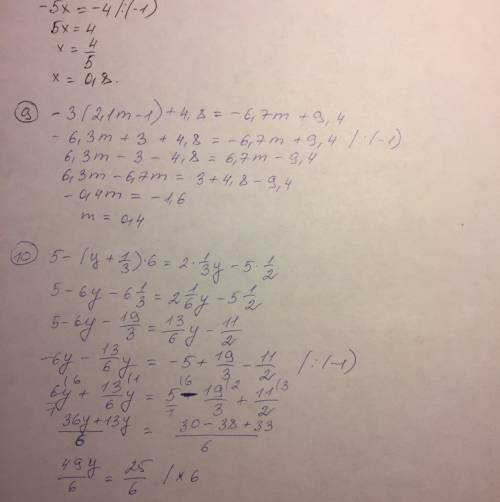 -5x = -4 /:(-1)
5x = 4
x = 4/5
x = 0,8.
⑨ -3(2,1m-1)+4,8 = -6,7m + 9,4
-6,3m + 3 + 4,8 = -6,7m + 9,4 /:(-1)
6,3m - 3 - 4,8 = 6,7m - 9,4
6,3m - 6,7m = 3 + 4,8 - 9,4
-0,4m = -1,6
m = 0,4
⑩ 5-(y+1/3)·6 = 2·1/3y - 5·1/2
5-6y-6 1/3 = 2 1/6y - 5 1/2
5-6y - 19/3 = 13/6y - 11/2
-6y - 13/6y = -5 + 19/3 - 11/2 /:(-1)
6y/1(6 + 13/6y(1 = 5/1(6 - 19/3(2 + 11/2(3
36y+13y/6 = 30-38+33/6
49y/6 = 25/6 /×6